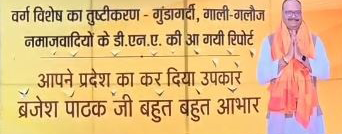 वर्ग विशेष का तुष्टीकरण - गुंडागर्दी, गाली-गलौज
नमाजवादियों के डी.एन.ए. की आ गयी रिपोर्ट
आपने प्रदेश का कर दिया उपकार
ब्रजेश पाठक जी बहुत बहुत आभार